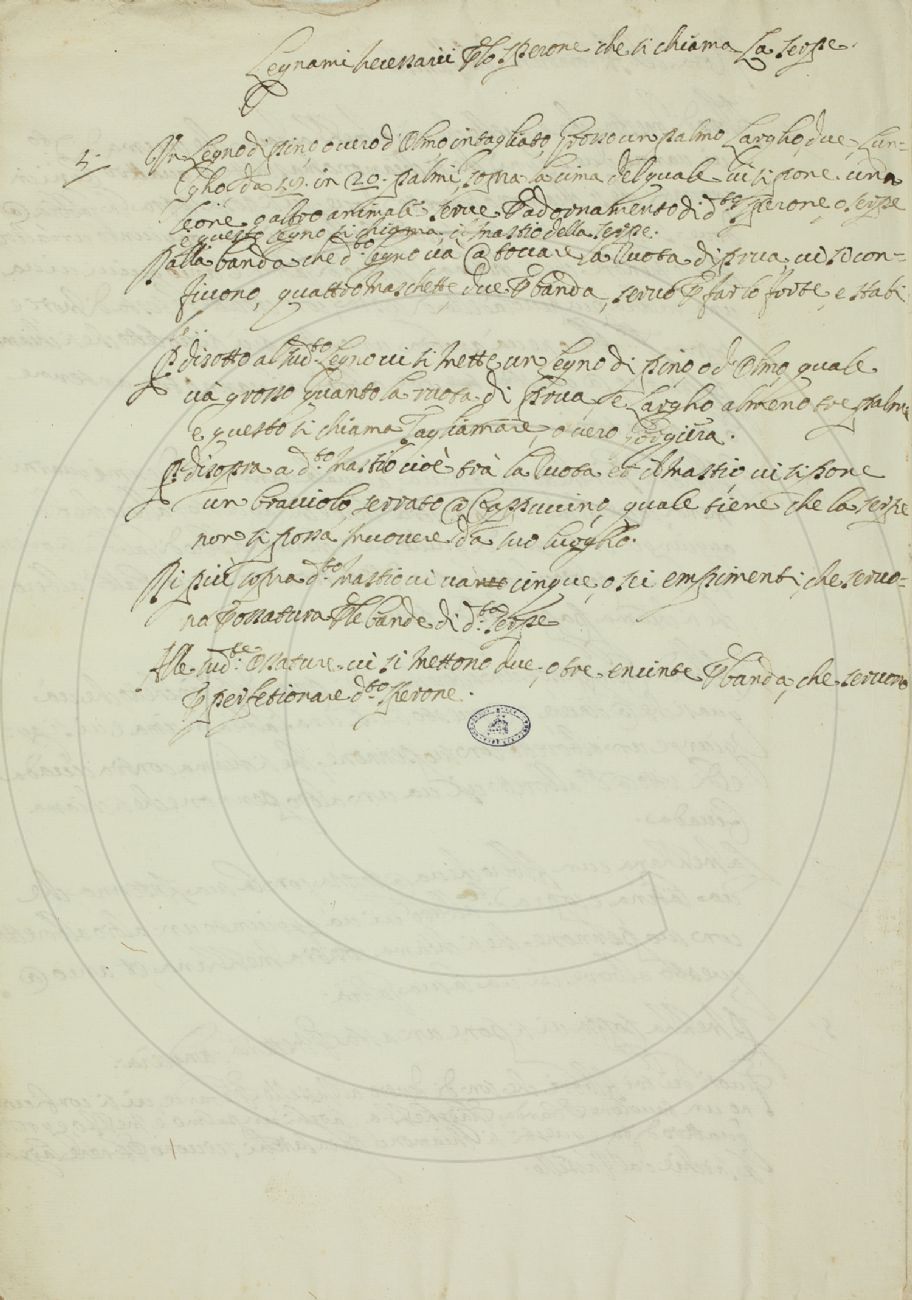 Legnami necessarii p lo sperone che si chiama La serpe.
5. Un Legno di pino, o vero d'Olmo intagliato, Grosso un palmo Largho, due, Lun-
gho, da in 20. palmi, sopra la cima del quale vi si pone una
leone, o altro animali serve p adornamento di d.to sperone, o serpe
e questo legno si chiama, il mastio della serpe.
Dalla banda che d.to legno va a toccare la Ruota di prua, vi si con-
ficono, quattro maschette, due p banda, servo p farlo forte, e stabi
le
P disotto al sud.to Legno vi si mette un legno di pino, o d'Olmo, quale
và grosso quanto la ruota di Prua, e Largho almeno tre palmi
e questo si chiama Tagliamare, o vero
P disopra a d.to mastio cioè trà la Ruota et il mastio vi si pone
un bracciolo, serrato a Cappuccino, quale tiene che la serpe
non si possa muovere da suo luogho.
Di più sopra d.to mastio vi va cinque, o sei empimenti, che servo-
na p ossatura p le bande di d.ta serpe
Alle sud.te Ossature vi si mettono due, o tre, encinte p banda, che servono
p perfetionare d.to sperone.